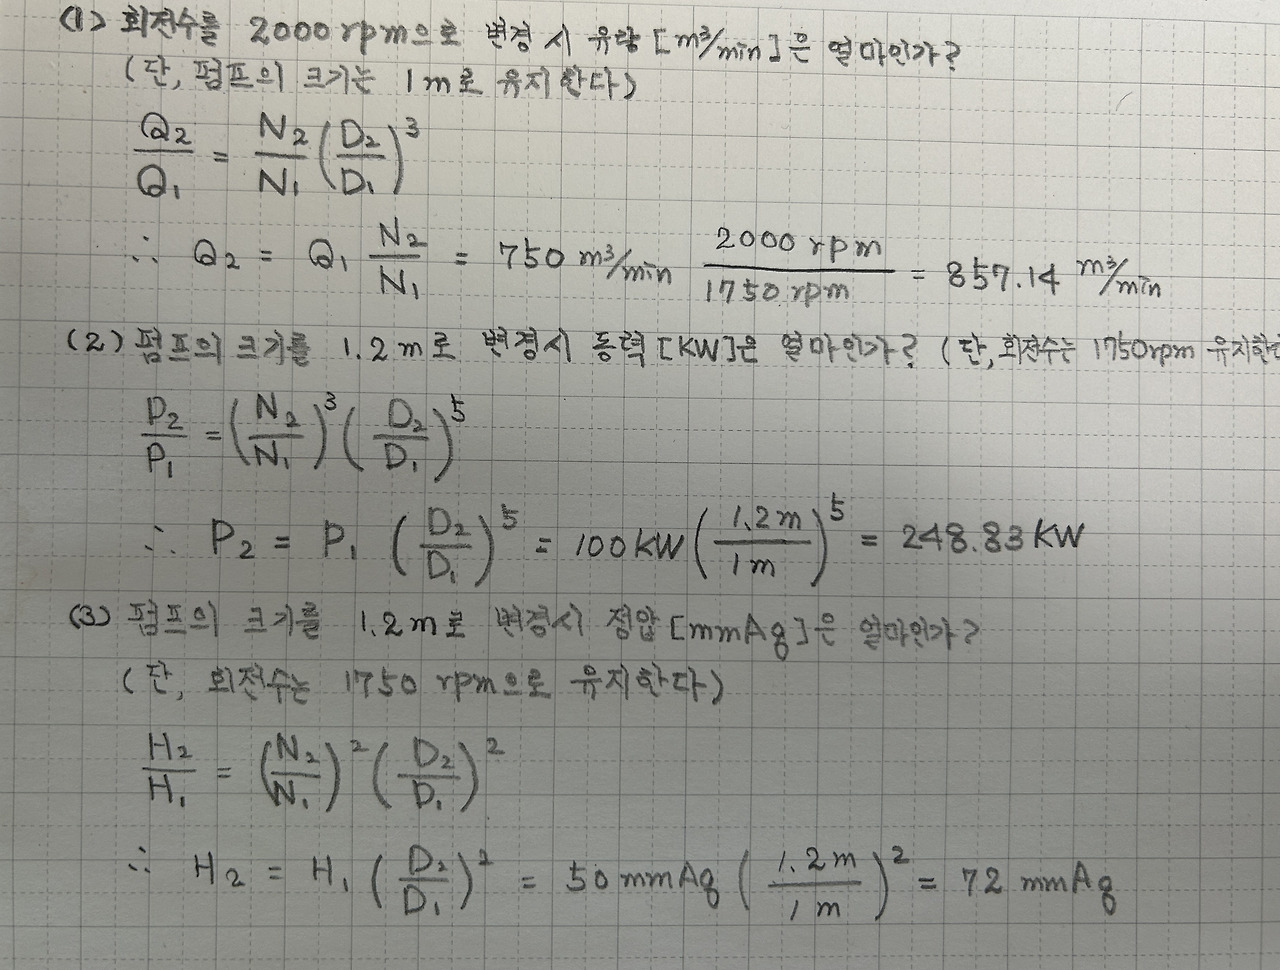 (1) 회전수를 2000rpm으로 변경 시 유량 [m³/min]은 얼마인가?
(단, 펌프의 크기는 1m로 유지한다)
Q₂/Q₁ = N₂/N₁ (D₂/D₁)³
∴ Q₂ = Q₁ N₂/N₁ = 750 m³/min 2000 rpm/1750 rpm = 857.14 m³/min
(2) 펌프의 크기를 1.2m로 변경시 동력 [KW]은 얼마인가? (단, 회전수는 1750rpm 유지한
P₂/P₁ = (N₂/N₁)³ (D₂/D₁)⁵
∴ P₂ = P₁ (D₂/D₁)⁵ = 100KW (1.2m/1m)⁵ = 248.83 KW
(3) 펌프의 크기를 1.2m로 변경시 정압 [mmAq]은 얼마인가?
(단, 회전수는 1750 rpm으로 유지한다)
H₂/H₁ = (N₂/N₁)² (D₂/D₁)²
∴ H₂ = H₁ (D₂/D₁)² = 50 mmAq (1.2m/1m)² = 72 mmAq